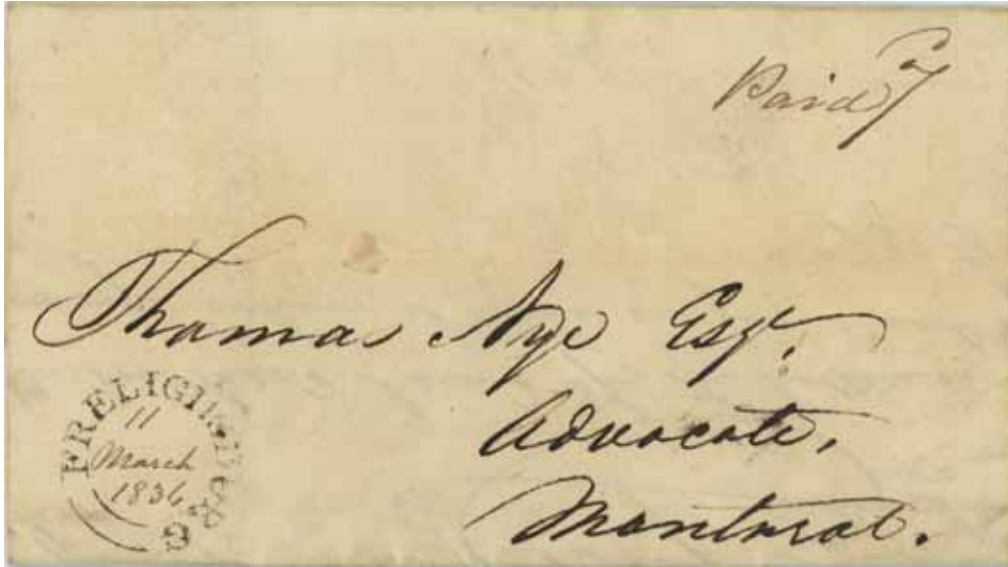 Paid 7
Thomas Nye Esqr.
Advocate,
Montreal.
FRELIGHSBURG
11
March
1836